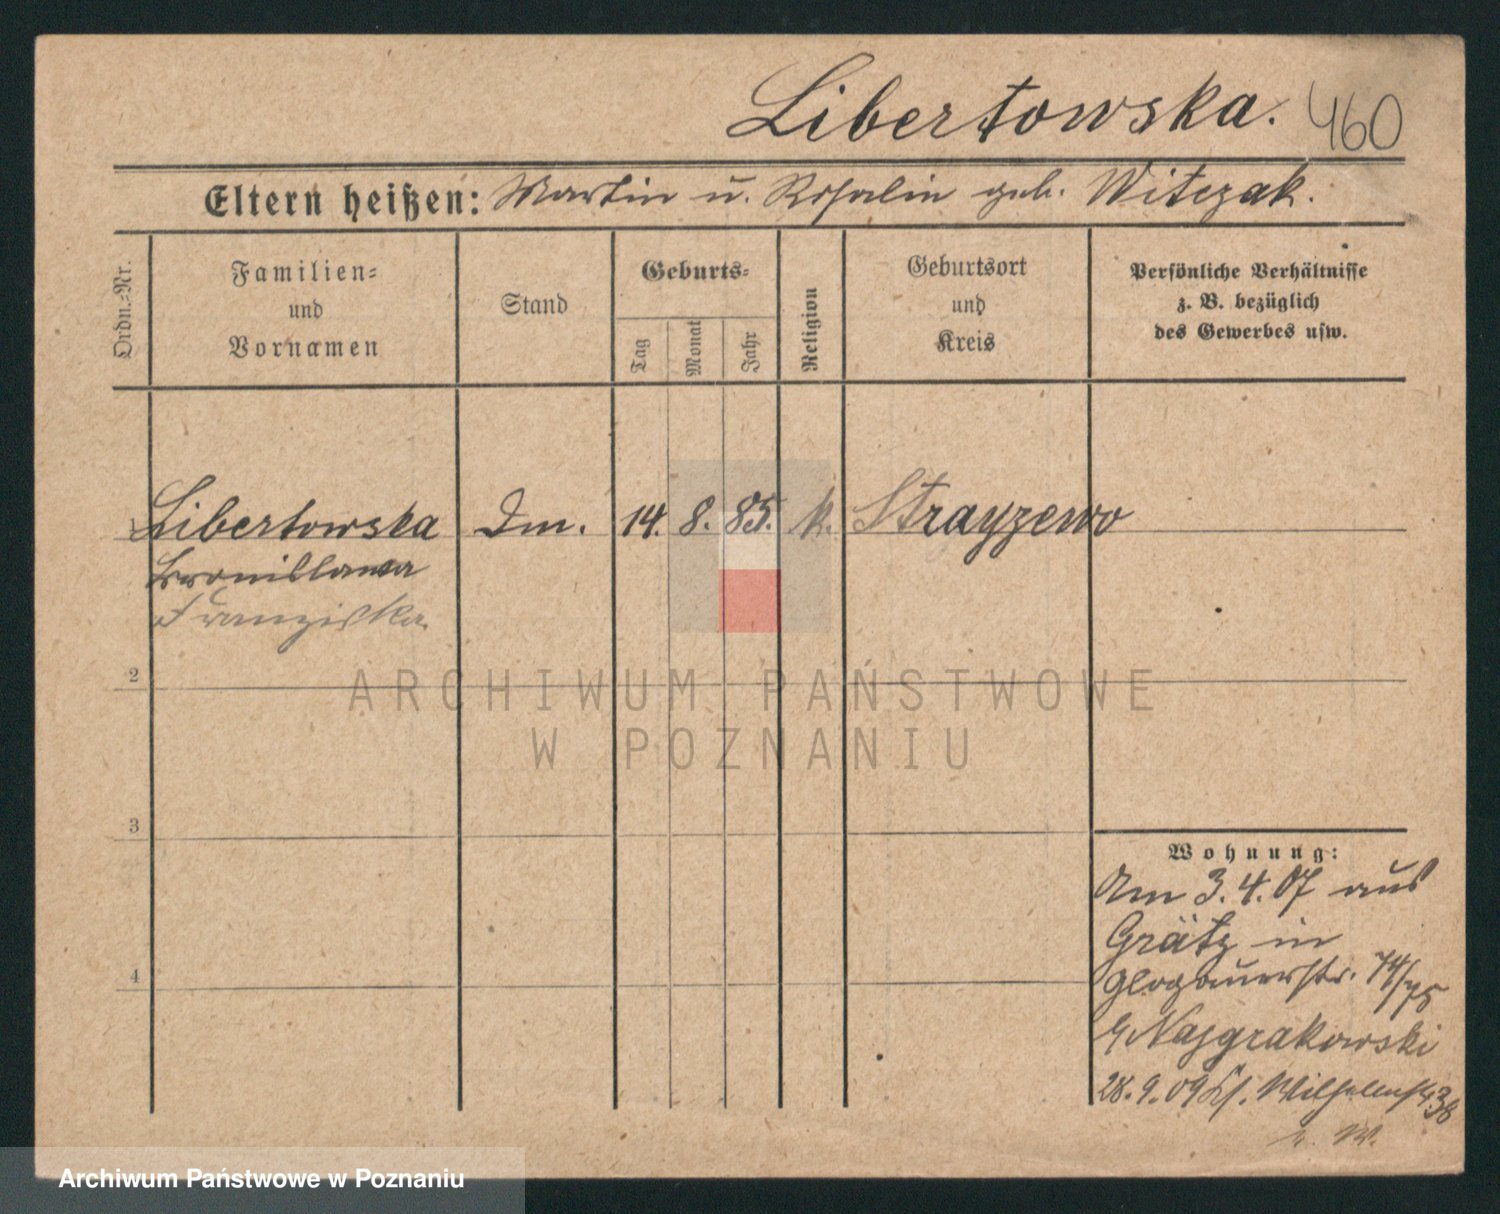 Libertowska. 460
Eltern heißen: Martin u. Rosalin geb. Witczak.
Ordn.-Nr.
Familien-
und
Vornamen
Stand
Geburts-
Tag
Monat
Jahr
Religion
Geburtsort
und
Kreis
Persönliche Verhältnisse
z. B. bezüglich
des Gewerbes usw.
Libertowska Dm. 14. 8. 85. k. Strayzewo
Bronislawa
Franziska
2
3
4
Wohnung:
Am 3.4.07 aus
Grätz in
Glogauerstr. 74/75
Najgrakowski
28.9.09 Wilhelmstr. 38
ARCHIWUM PAŃSTWOWE
W POZNANIU
Archiwum Państwowe w Poznaniu